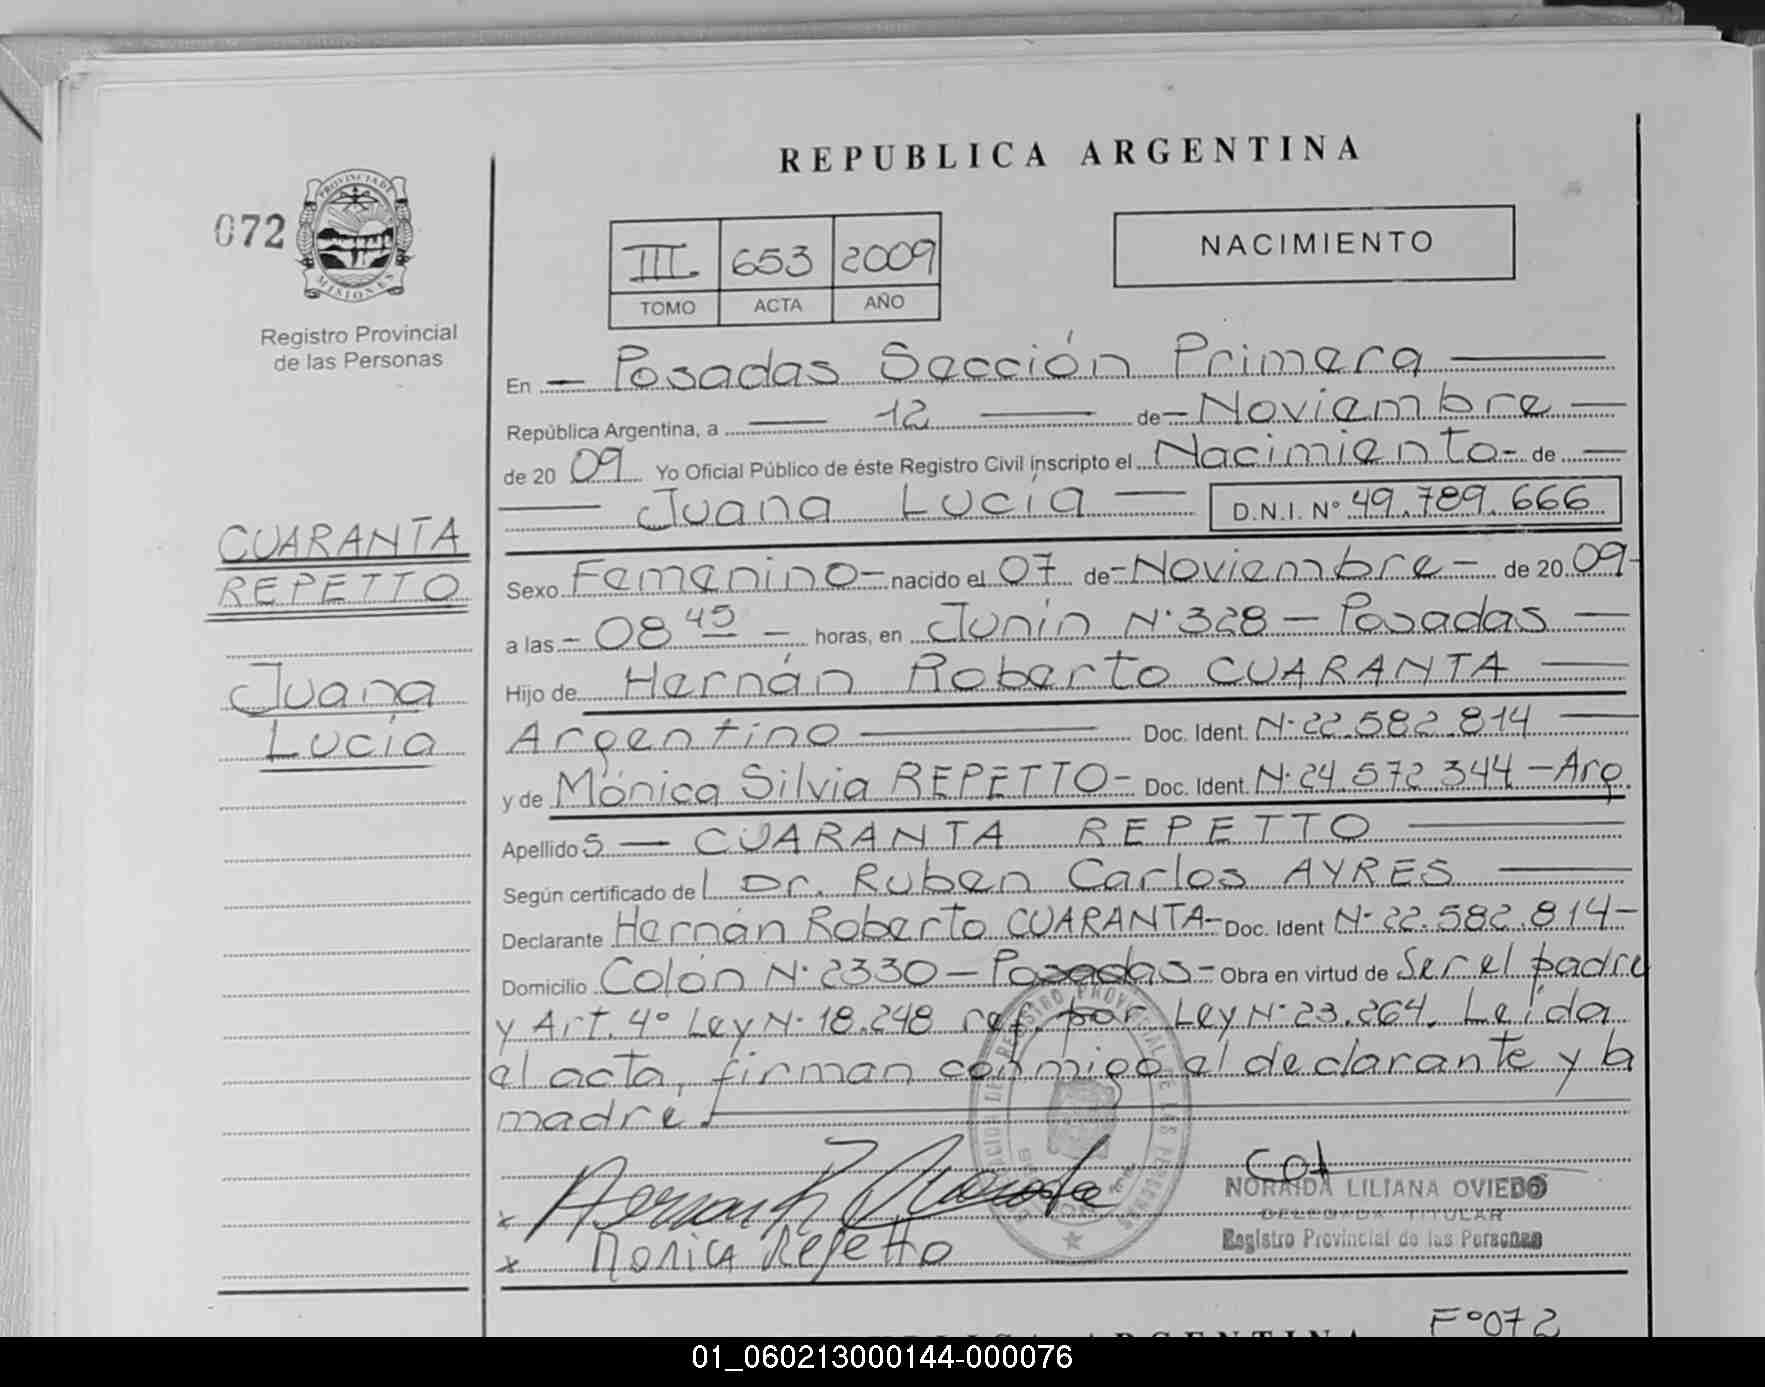 REPUBLICA ARGENTINA
072
PROVINCIA DE
MISIONES
Registro Provincial
de las Personas
III 653 2009
TOMO ACTA AÑO
NACIMIENTO
En — Posadas Sección Primera —
República Argentina, a — 12 — de — Noviembre —
de 20 09 Yo Oficial Público de éste Registro Civil inscripto el Nacimiento - de —
— Juana Lucía — D.N.I. N° 49.789.666
CUARANTA
REPETTO
Juana
Lucía
Sexo Femenino - nacido el 07 de - Noviembre - de 20 09 -
a las - 08 45 - horas, en Junín N° 328 - Posadas —
Hijo de Hernán Roberto CUARANTA —
Argentino — Doc. Ident. N° 22.582.814 —
y de Mónica Silvia REPETTO - Doc. Ident. N° 24.572.344 - Arg.
Apellido s — CUARANTA REPETTO —
Según certificado de l Dr. Ruben Carlos AYRES —
Declarante Hernán Roberto CUARANTA - Doc. Ident N° 22.582.814 -
Domicilio Colón N° 2330 - Posadas - Obra en virtud de Ser el padre
y Art. 4° Ley N° 18.248 ref. por Ley N° 23.264. Leída
el acta, firman conmigo el declarante y la
madre.
x
x Monica Repetto
NORAIDA LILIANA OVIEDO
DELEGADA TITULAR
Registro Provincial de las Personas
F° 072
REPUBLICA ARGENTINA
01_060213000144-000076